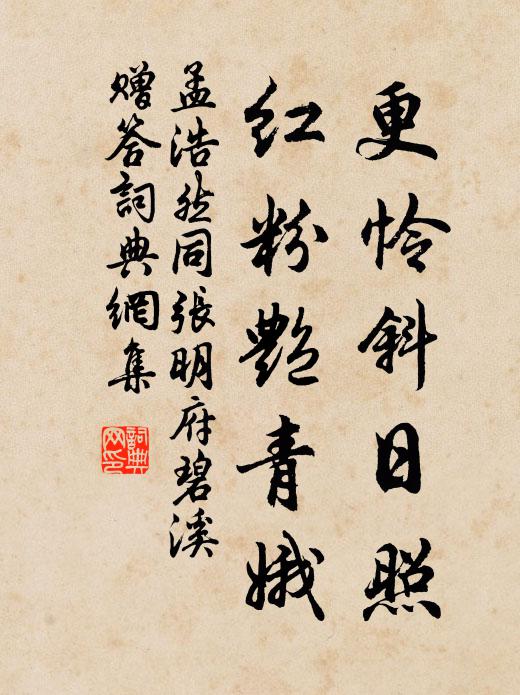 更怜斜日照
红粉艶青娥
孟浩然同張明府碧溪
赠答詞典網集
詞典
网印